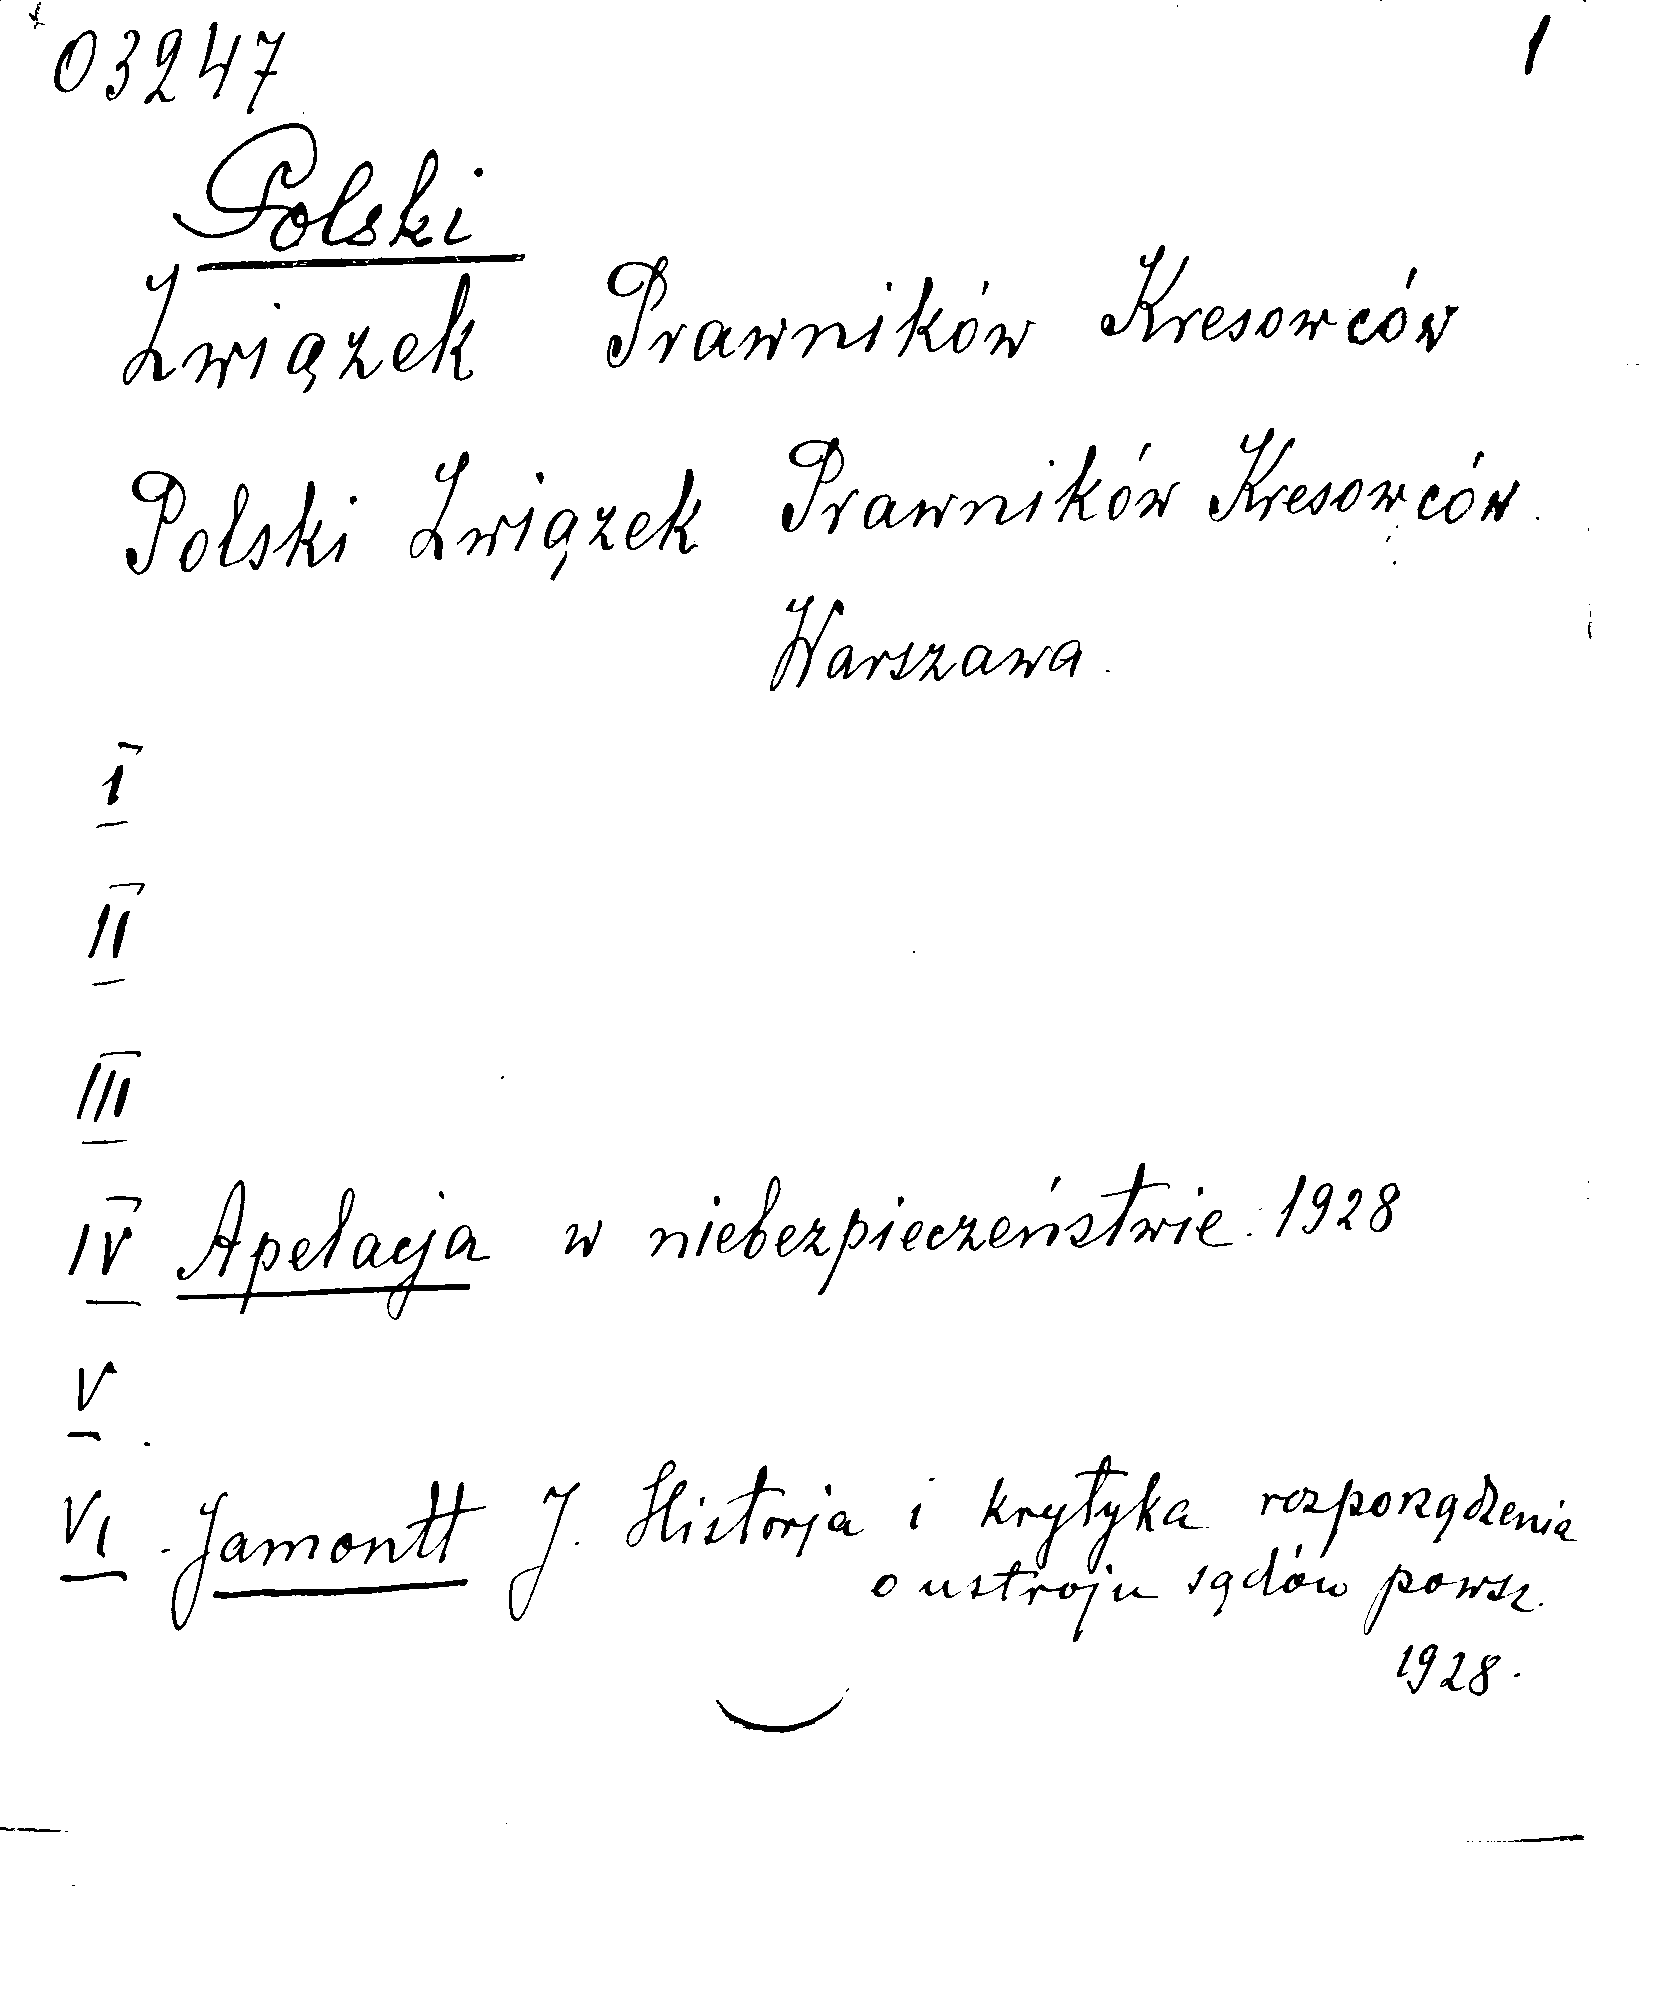 03247 1
Polski
Związek Prawników Kresowców
Polski Związek Prawników Kresowców.
Warszawa.
I
II
III
IV Apelacja w niebezpieczeństwie. 1928
V
VI Jamontt J. Historja i krytyka rozporządzenia
o ustroju sądów powsz.
1928.